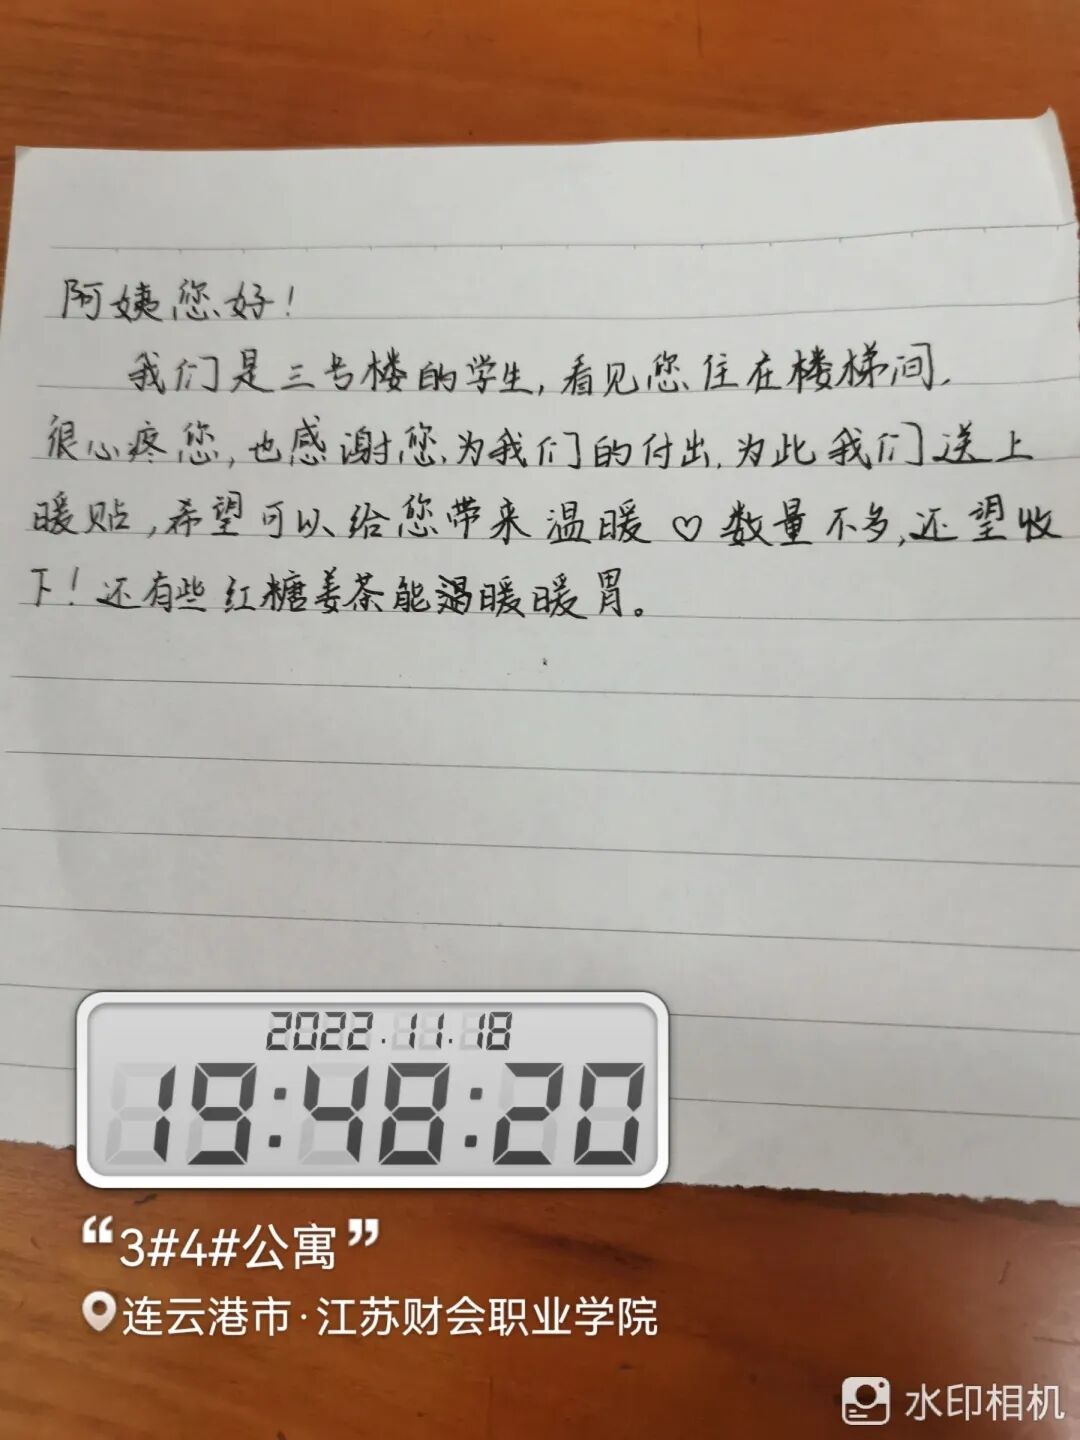 阿姨您好!
我们是三号楼的学生,看见您住在楼梯间,
很心疼您,也感谢您为我们的付出,为此我们送上
暖贴,希望可以给您带来温暖♡数量不多,还望收
下!还有些红糖姜茶能温暖暖胃。
2022.11.18
19:48:20
“3#4#公寓”
连云港市·江苏财会职业学院
水印相机